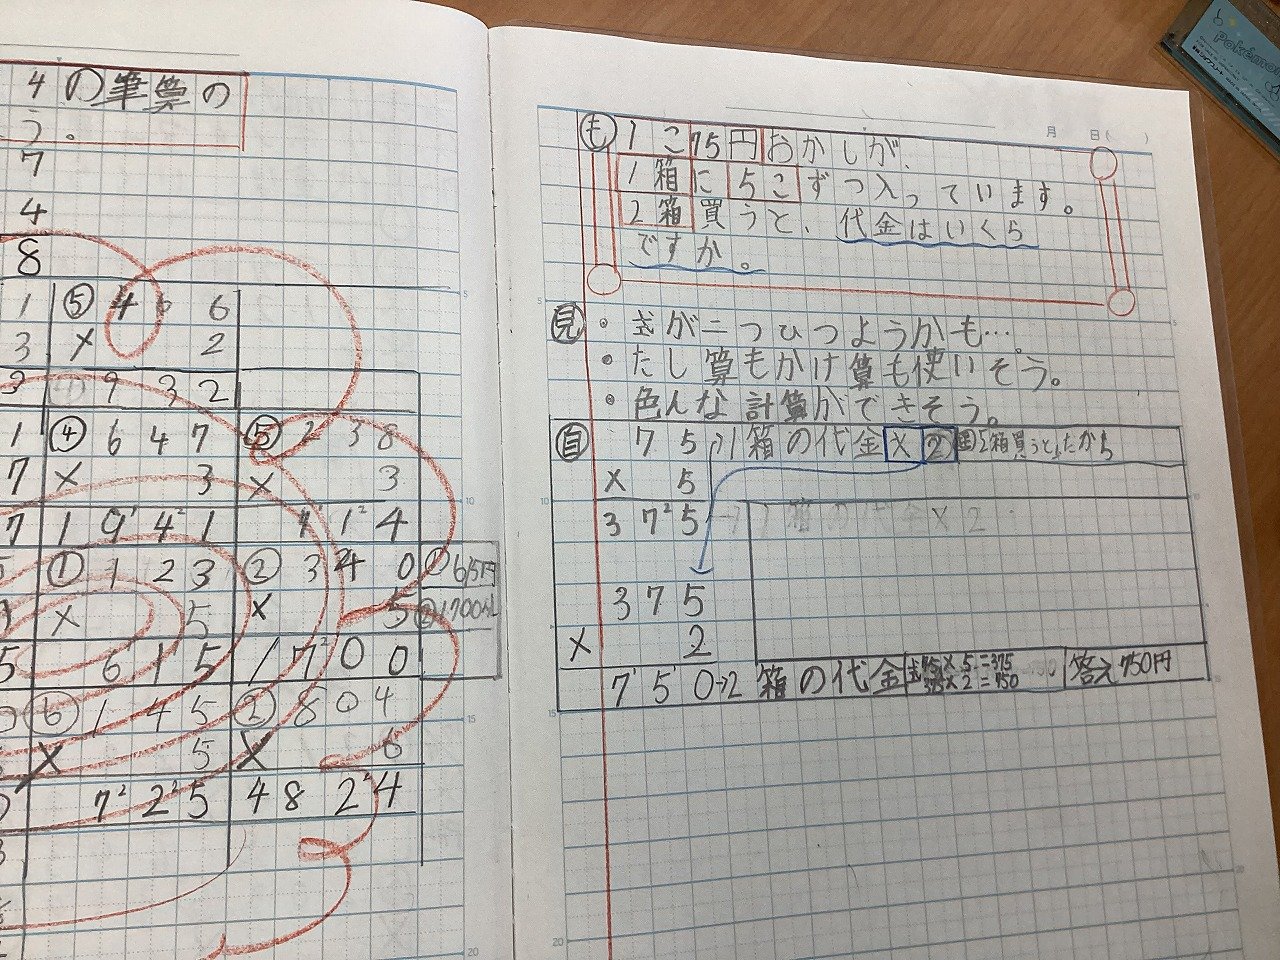 4の筆算の
う。
7
4
8
1 ⑤ 4 6 6
3 × 2
9 3 2
1 ④ 6 4 7 ⑤ 2 3 8
7 × 3 × 3
7 1 9 4 1 7 1 4
① 1 2 3 ② 3 4 0 ① 615円
× 5 × 5
5 6 1 5 1 7 0 0
⑥ 1 4 5 ② 8 0 4
× 5 × 6
7 2 5 4 8 2 4
月 日( )
も 1こ75円おかしが、
1箱に5こずつ入っています。
2箱買うと、代金はいくら
ですか。
見 ・式が二つひつようかも…。
・たし算もかけ算も使いそう。
・色んな計算ができそう。
自 75→1箱の代金×2 2箱買うと、だから
× 5
3 7 5
3 7 5
× 2
7 5 0→2箱の代金 式75×5=375 答え750円
375×2=750
Pokémon